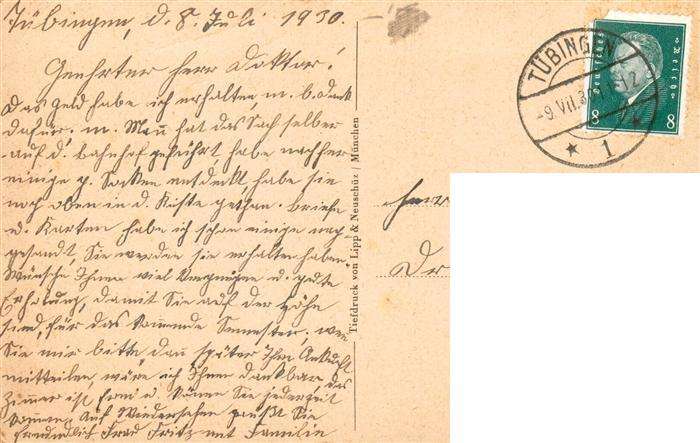 Tübingen, d. 8. Juli 1930.
Geehrter Herr Doktor!
Das Geld habe ich erhalten, m. b. Dank
dafür. m. Mann hat das Sach selber
auf d. Bahnhof geführt, habe nachher
einige p. Socken entdeckt, habe sie
noch oben in d. Kiste gethan. Briefe
u. Karten habe ich schon einige nach
gesandt, Sie werden sie erhalten haben.
Wünsche Ihnen viel Vergnügen u. gute
Erholung, damit Sie auf der Höhe
sind, für das kommende Semester, wenn
Sie mir bitte, dann später Ihre Ankunft
mitteilen, wäre ich Ihnen dankbar, das
Zimmer ist frei u. können Sie jederzeit
kommen. Auf Wiedersehen grüßt Sie
freundlich Frau Fritz mit Familie
Tiefdruck von Lipp & Neuschüz / München
TÜBINGEN
-9.VII.30
* 1 *
Deutsches Reich
8 8
Herr
Dr